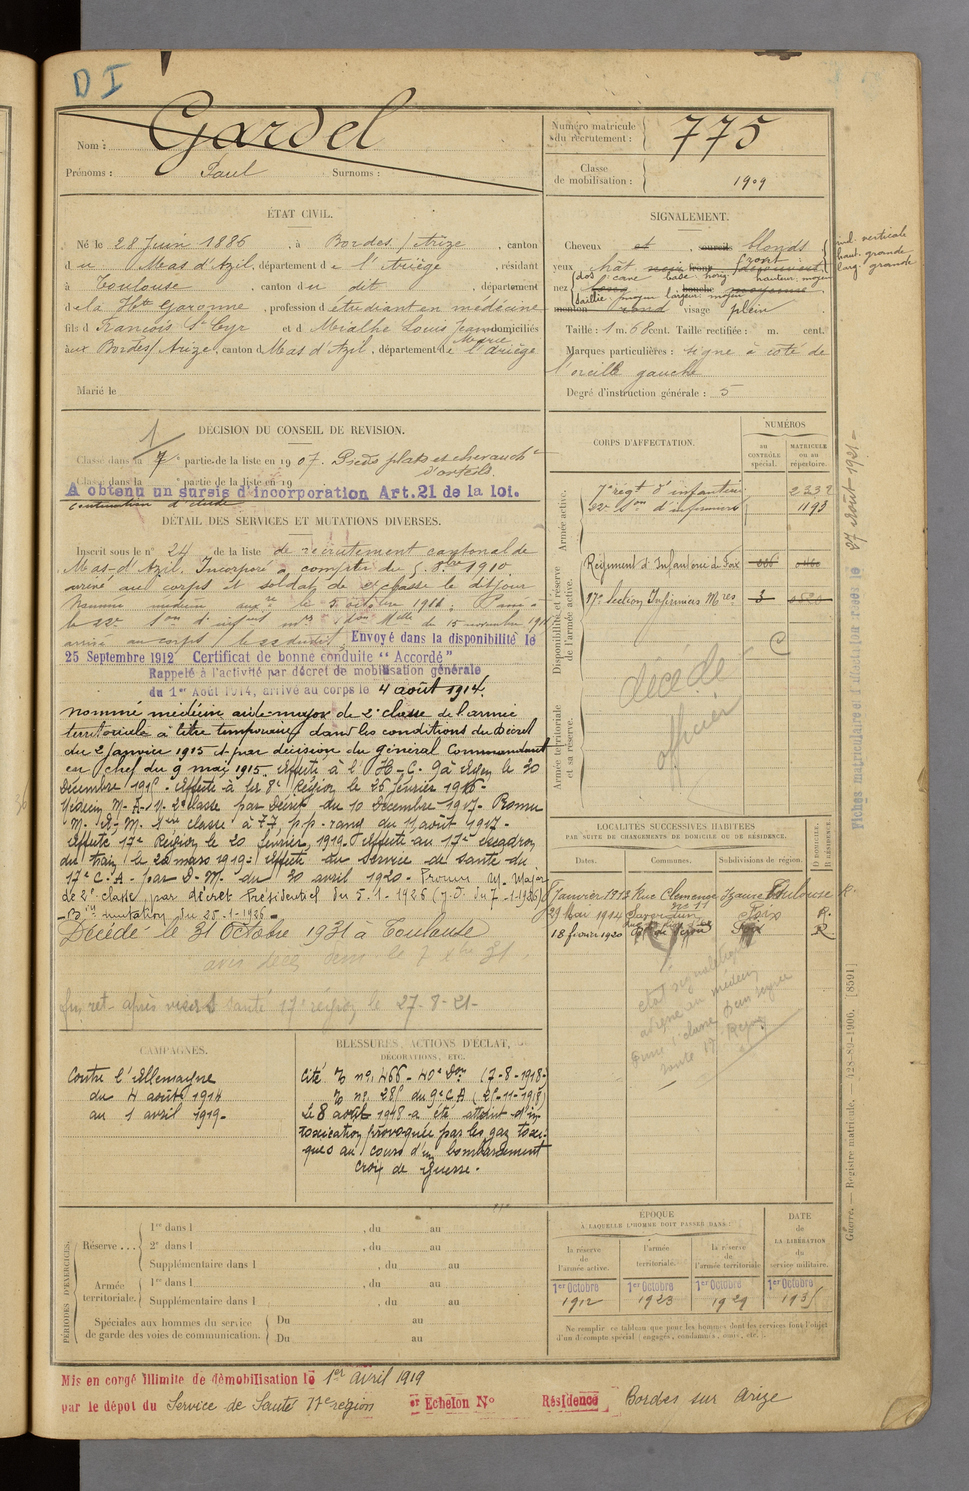 D I
Nom : Gardel
Prénoms : Paul Surnoms :
Numéro matricule du recrutement : 775
Classe de mobilisation : 1909
ÉTAT CIVIL.
Né le 28 Juin 1886, à Bordes / Arize, canton
du Mas d'Azil, département de l'Ariège, résidant
à Toulouse, canton du dit, département
de la Hte Garonne, profession d'étudiant en médecine
fils de François St Cyr et d Mialhe Louise Jeanne Marie domiciliés
aux Bordes / Arize, canton d Mas d'Azil, département de l'Ariège
Marié le
SIGNALEMENT.
Cheveux et sourcils blonds
yeux chât
nez dos cave base horiz hauteur moyen
saillie moyen largeur moyen
menton rond visage plein
incl. verticale
haut. grande
larg. grande
Taille : 1 m. 6 cent. Taille rectifiée : m. cent.
Marques particulières : signe à côté de
l'oreille gauche
Degré d'instruction générale : 5
DÉCISION DU CONSEIL DE REVISION.
Classé dans la 7e partie de la liste en 1907. Pieds plats et chevaucht
d'orteils.
Classé dans la e partie de la liste en 19
A obtenu un sursis d'incorporation Art. 21 de la loi.
DÉTAIL DES SERVICES ET MUTATIONS DIVERSES.
Inscrit sous le n° 24 de la liste de recrutement cantonal de
Mas-d'Azil. Incorporé à compter du 5 8bre 1910
arrivé au corps et soldat de 2e classe le dit jour
Nommé médecin auxre le 5 octobre 1911. Passé à
la 22e Son d'infirs mres du 15 novembre 1911
arrivé au corps le 22 dudit. Envoyé dans la disponibilité le
25 Septembre 1912 Certificat de bonne conduite "Accordé"
Rappelé à l'activité par décret de mobilisation générale
du 1er Août 1914, arrivé au corps le 4 août 1914.
Nommé médecin aide-major de 2e classe de l'armée
territoriale à titre temporaire dans les conditions du décret
du 2 Janvier 1915 et par décision du Général Commandant
en chef du 9 mai 1915. Affecté à l'H-C. 9 à Agen le 20
Décembre 1915 - Affecté à la 8e Région le 26 février 1916 -
Médecin M-A-M- 2e classe par Décret du 10 Décembre 1917 - Promu
M.A.M. 1ère classe à T.T. p.p. rang du 11 août 1917 -
Affecté 17e Région le 20 février 1919 - Affecté au 17e escadron
du train le 22 mars 1919 - Affecté au Service de santé du
17e C.A - par D-M. du 30 avril 1920 - Promu M. Major
de 2e classe par décret Présidentiel du 5-1-1926 (J.O. du 7-1-1926)
mutation du 25-1-1926
Décédé le 31 Octobre 1931 à Toulouse
santé 17e région le 27-8-21-
CORPS D'AFFECTATION.
NUMÉROS
AU CONTRÔLE spécial.
MATRICULE ou au répertoire.
Armée active.
7e régt d'infanterie 2332
22e Son d'infirmiers 1193
Disponibilité et réserve de l'armée active.
Régiment d'Infanterie de Foix
17e Section Infirmiers Mres 3
C
Armée territoriale et sa réserve.
décédé
officier
Fiches matricules et d'affectation créées le 27 Août 1921 -
LOCALITÉS SUCCESSIVES HABITÉES
PAR SUITE DE CHANGEMENTS DE DOMICILE OU DE RÉSIDENCE.
Dates. Communes. Subdivisions de région. D DOMICILE. R RÉSIDENCE.
Janvier 1913 Rue Clémence Isaure Toulouse R.
29 Mai 1914 Foix R.
18 février 1920 Foix R
CAMPAGNES.
Contre l'Allemagne
du 4 août 1914
au 1 avril 1919 -
BLESSURES, ACTIONS D'ÉCLAT,
DÉCORATIONS, ETC.
Cité D n° 466 - 40e Don (7-8-1918)
D n° 285 du 9e C.A (25-11-1918)
Le 8 août 1918 a été atteint d'in
toxication provoquée par les gaz toxi-
ques au cours d'un bombardement
Croix de Guerre.
PÉRIODES D'EXERCICES.
Réserve ... 1re dans l , du au
2e dans l , du au
Supplémentaire dans l , du au
Armée territoriale. 1re dans l , du au
Supplémentaire dans l , du au
Spéciales aux hommes du service
de garde des voies de communication. Du au
Du au
ÉPOQUE
À LAQUELLE L'HOMME DOIT PASSER DANS :
la réserve de l'armée active.
l'armée territoriale.
la réserve de l'armée territoriale
DATE de LA LIBÉRATION du service militaire.
1er Octobre 1912
1er Octobre 1923
1er Octobre 1929
1er Octobre 1935
Ne remplir ce tableau que pour les hommes dont les services font l'objet
d'un décompte spécial (engagés, condamnés, omis, etc.).
Guerre. — Registre matricule. — 128-89-1906. [8591]
Mis en congé illimité de démobilisation le 1er avril 1919
par le dépôt du Service de Santé 17e région er Echelon N° Résidence Bordes sur Arize